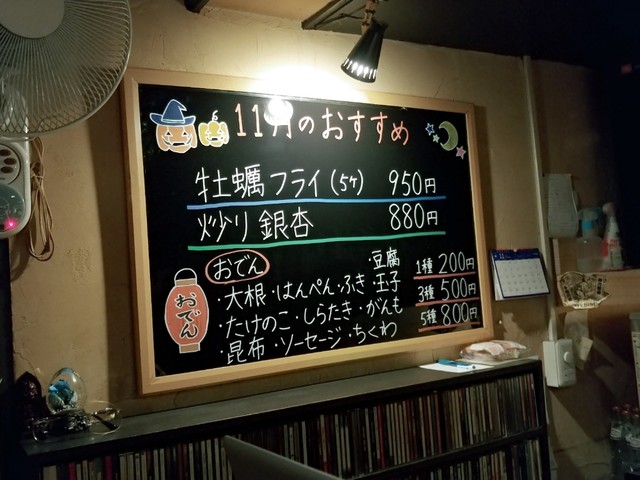 11月のおすすめ
牡蠣フライ(5ケ) 950円
炒り銀杏 880円
おでん
・豆腐
・大根・はんぺん・ふき・玉子
・たけのこ・しらたき・がんも
・昆布・ソーセージ・ちくわ
1種 200円
3種 500円
5種 800円
おでん